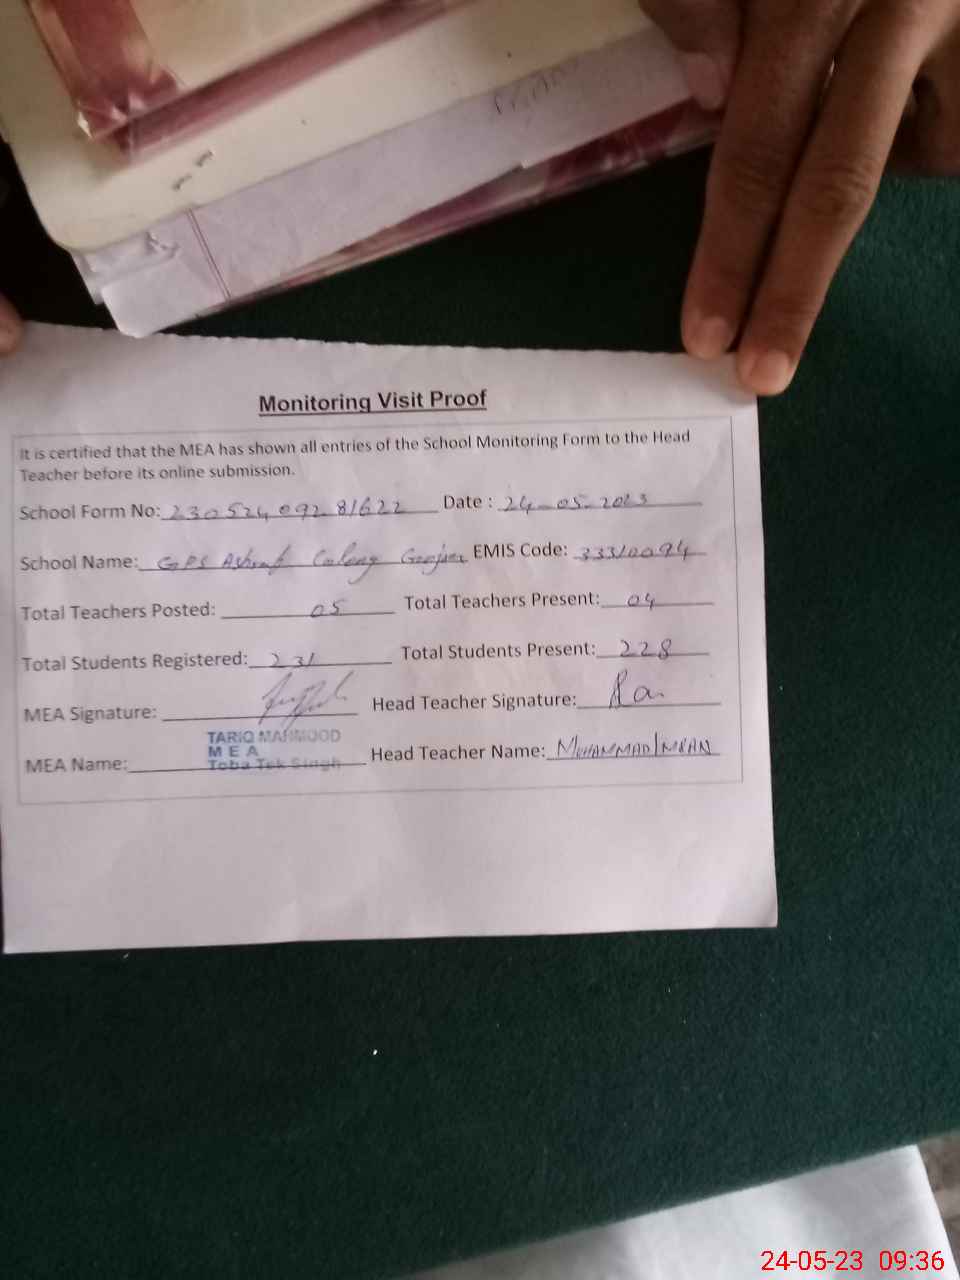 Monitoring Visit Proof
It is certified that the MEA has shown all entries of the School Monitoring Form to the Head
Teacher before its online submission.
School Form No: 23052409281622 Date : 24-05-2023
School Name: GPS Ashraf Colony Gojra EMIS Code: 33310094
Total Teachers Posted: 05 Total Teachers Present: 04
Total Students Registered: 231 Total Students Present: 228
MEA Signature: Head Teacher Signature:
TARIQ MAHMOOD
M E A
MEA Name: Toba Tek Singh Head Teacher Name: MUHAMMAD IMRAN
24-05-23 09:36